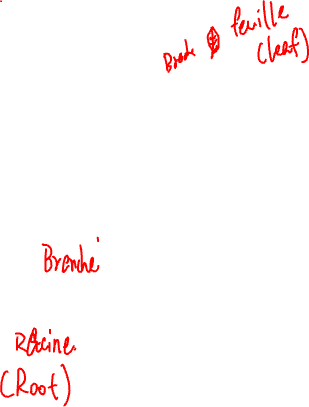 feuille
(leaf)
Branche
Racine
(Root)